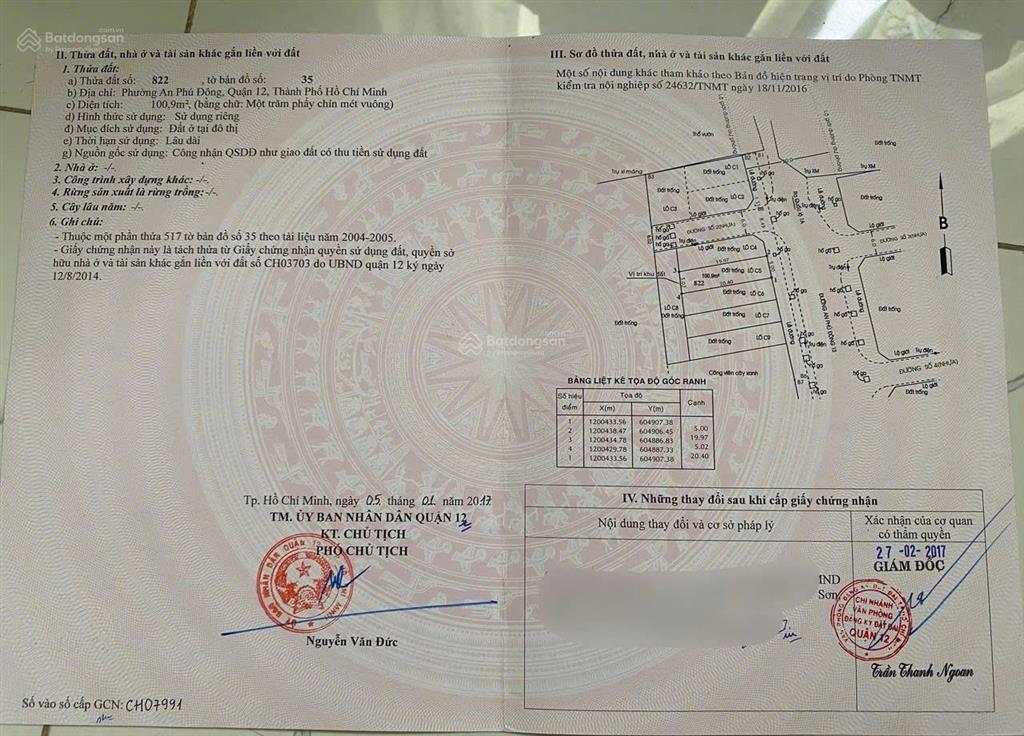 Batdongsan
II. Thửa đất, nhà ở và tài sản khác gắn liền với đất
1. Thửa đất:
a) Thửa đất số: 822 , tờ bản đồ số: 35
b) Địa chỉ: Phường An Phú Đông, Quận 12, Thành Phố Hồ Chí Minh
c) Diện tích: 100,9m², (bằng chữ: Một trăm phẩy chín mét vuông)
d) Hình thức sử dụng: Sử dụng riêng
đ) Mục đích sử dụng: Đất ở tại đô thị
e) Thời hạn sử dụng: Lâu dài
g) Nguồn gốc sử dụng: Công nhận QSDĐ như giao đất có thu tiền sử dụng đất
2. Nhà ở: -/-.
3. Công trình xây dựng khác: -/-.
4. Rừng sản xuất là rừng trồng:-/-.
5. Cây lâu năm: -/-.
6. Ghi chú:
- Thuộc một phần thửa 517 tờ bản đồ số 35 theo tài liệu năm 2004-2005.
- Giấy chứng nhận này là tách thửa từ Giấy chứng nhận quyền sử dụng đất, quyền sở
hữu nhà ở và tài sản khác gắn liền với đất số CH03703 do UBND quận 12 ký ngày
12/8/2014.
Tp. Hồ Chí Minh, ngày 05 tháng 01 năm 2017
TM. ỦY BAN NHÂN DÂN QUẬN 12
KT. CHỦ TỊCH
PHÓ CHỦ TỊCH
Nguyễn Văn Đức
Số vào sổ cấp GCN: CH07991
III. Sơ đồ thửa đất, nhà ở và tài sản khác gắn liền với đất
Một số nội dung khác tham khảo theo Bản đồ hiện trạng vị trí do Phòng TNMT
kiểm tra nội nghiệp số 24632/TNMT ngày 18/11/2016
Thổ vườn
Đất trống
Trụ xi măng
LÔ C1
Đất trống
LÔ C2
LÔ C3
Trụ XM
Đất trống
Lộ giới
ĐƯỜNG SỐ 2(NHỰA)
Đất trống
LÔ C4
19.97
Vị trí khu đất
100,9m²
822
20.40
LÔ C5
Đất trống
LÔ C6
LÔ C7
LÔ C8
LÔ C9
Đất trống
Công viên cây xanh
ĐƯỜNG AN PHÚ ĐÔNG 13
Lề đường
Trụ điện
hố ga
Lộ giới
ĐƯỜNG SỐ 4(NHỰA)
Đất trống
B
BẢNG LIỆT KÊ TỌA ĐỘ GÓC RANH
Số hiệu điểm Tọa độ Cạnh
X(m) Y(m)
1 1200433.56 604907.38
5.00
2 1200438.47 604906.45
19.97
3 1200434.78 604886.83
5.02
4 1200429.78 604887.33
20.40
1 1200433.56 604907.38
IV. Những thay đổi sau khi cấp giấy chứng nhận
Nội dung thay đổi và cơ sở pháp lý
Xác nhận của cơ quan
có thẩm quyền
27 -02- 2017
GIÁM ĐỐC
IND
Sơn
CHI NHÁNH
VĂN PHÒNG
ĐĂNG KÝ ĐẤT ĐAI
QUẬN 12
Trần Thanh Ngoan
Batdongsan